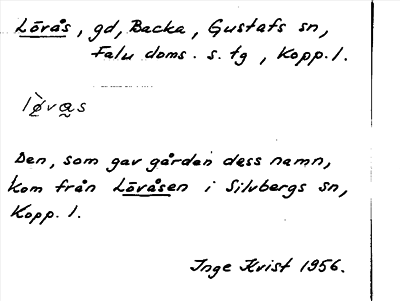 Lövås, gd, Backa, Gustafs sn,
Falu doms. s. tg, Kopp. l.
lø̀vas
Den, som gav gården dess namn,
kom från Lövåsen i Silvbergs sn,
Kopp. l.
Inge Kvist 1956.